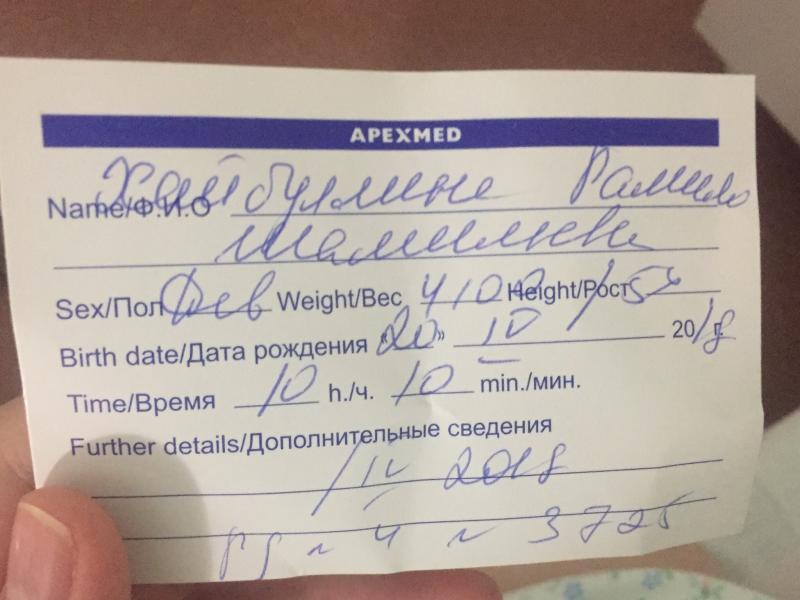 APEXMED
Name/Ф.И.О Хайбуллина Рамиля
Шамилевна
Sex/Пол Дев Weight/Вес 4100 Height/Рост
Birth date/Дата рождения «20» 10 2018 г.
Time/Время 10 h./ч. 10 min./мин.
Further details/Дополнительные сведения
2018
№ 4 № 3725